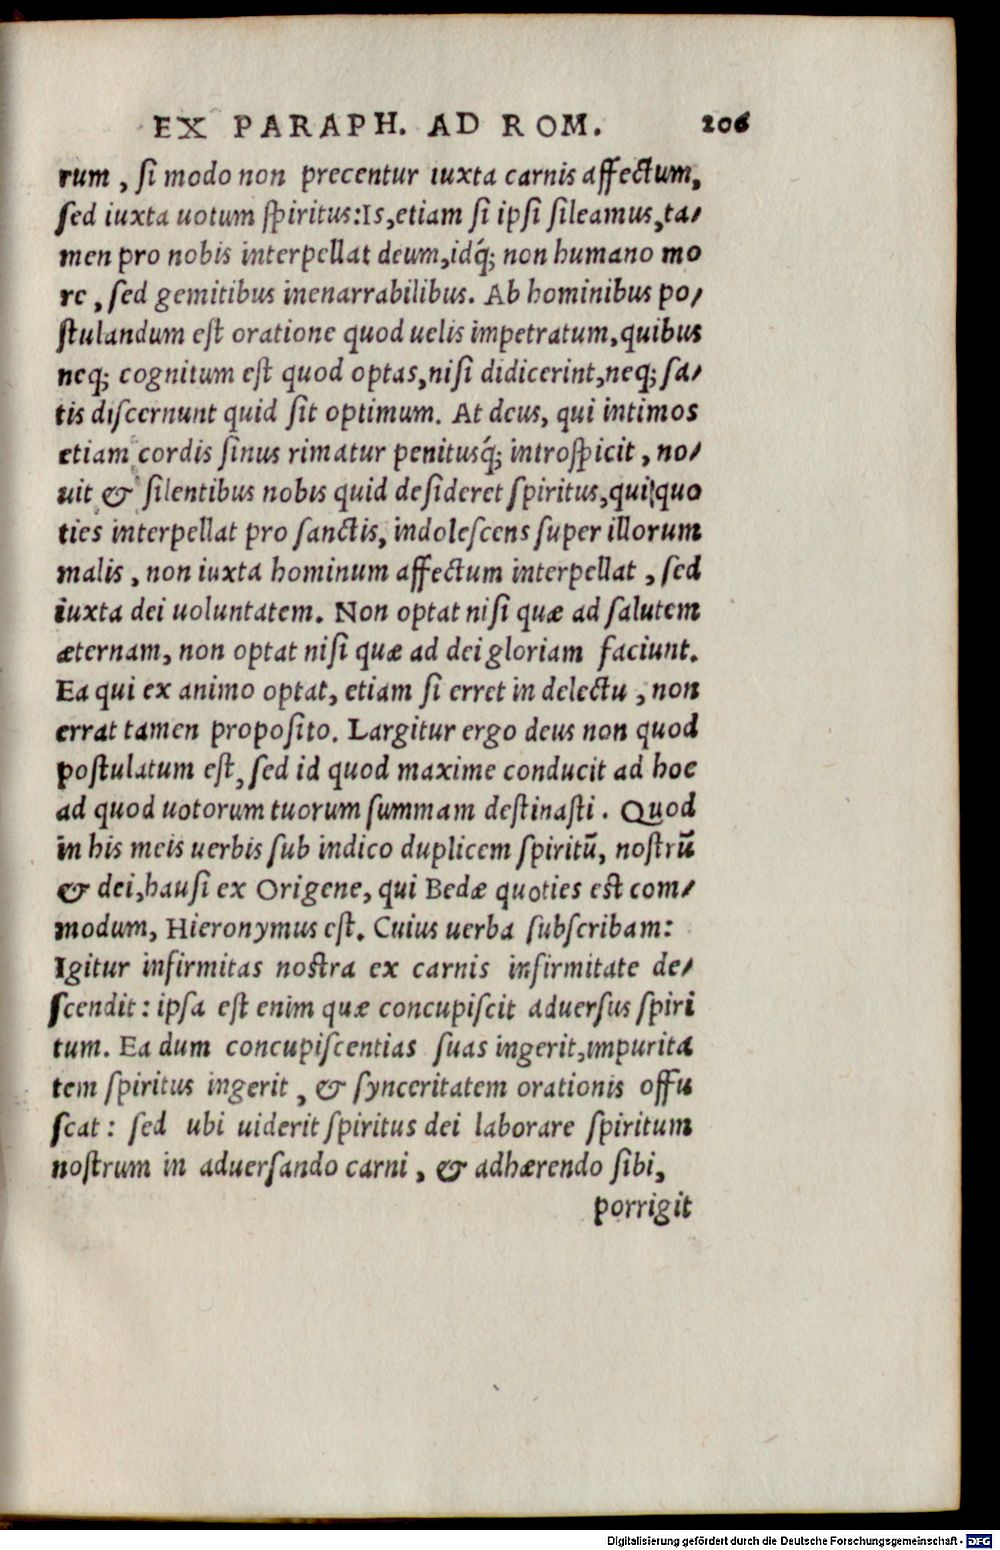 EX PARAPH. AD ROM. 206
rum, ſi modo non precentur iuxta carnis affectum,
ſed iuxta uotum ſpiritus: Is, etiam ſi ipſi ſileamus, ta/
men pro nobis interpellat deum, idq́; non humano mo
re, ſed gemitibus inenarrabilibus. Ab hominibus po/
ſtulandum eſt oratione quod uelis impetratum, quibus
neq; cognitum eſt quod optas, niſi didicerint, neq; ſa/
tis diſcernunt quid ſit optimum. At deus, qui intimos
etiam cordis ſinus rimatur penitusq́; introſpicit, no/
uit & ſilentibus nobis quid deſideret ſpiritus, qui quo
ties interpellat pro ſanctis, indoleſcens ſuper illorum
malis, non iuxta hominum affectum interpellat, ſed
iuxta dei uoluntatem. Non optat niſi quæ ad ſalutem
æternam, non optat niſi quæ ad dei gloriam faciunt.
Ea qui ex animo optat, etiam ſi erret in delectu, non
errat tamen propoſito. Largitur ergo deus non quod
poſtulatum eſt, ſed id quod maxime conducit ad hoc
ad quod uotorum tuorum ſummam deſtinaſti. Quod
in his meis uerbis ſub indico duplicem ſpiritū, noſtrū
& dei, hauſi ex Origene, qui Bedæ quoties eſt com/
modum, Hieronymus eſt. Cuius uerba ſubſcribam:
Igitur infirmitas noſtra ex carnis infirmitate de/
ſcendit: ipſa eſt enim quæ concupiſcit aduerſus ſpiri
tum. Ea dum concupiſcentias ſuas ingerit, impurita
tem ſpiritus ingerit, & ſynceritatem orationis offu
ſcat: ſed ubi uiderit ſpiritus dei laborare ſpiritum
noſtrum in aduerſando carni, & adhærendo ſibi,
porrigit
Digitalisierung gefördert durch die Deutsche Forschungsgemeinschaft - DFG